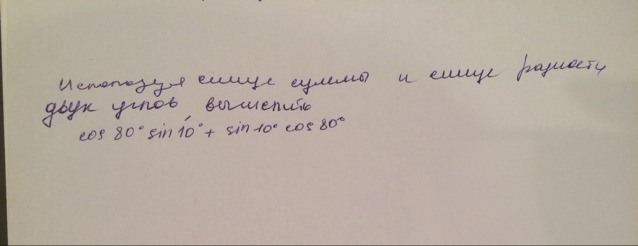 Используя синус суммы и синус разности
двух углов, вычислить
cos 80° sin 10° + sin 10° cos 80°